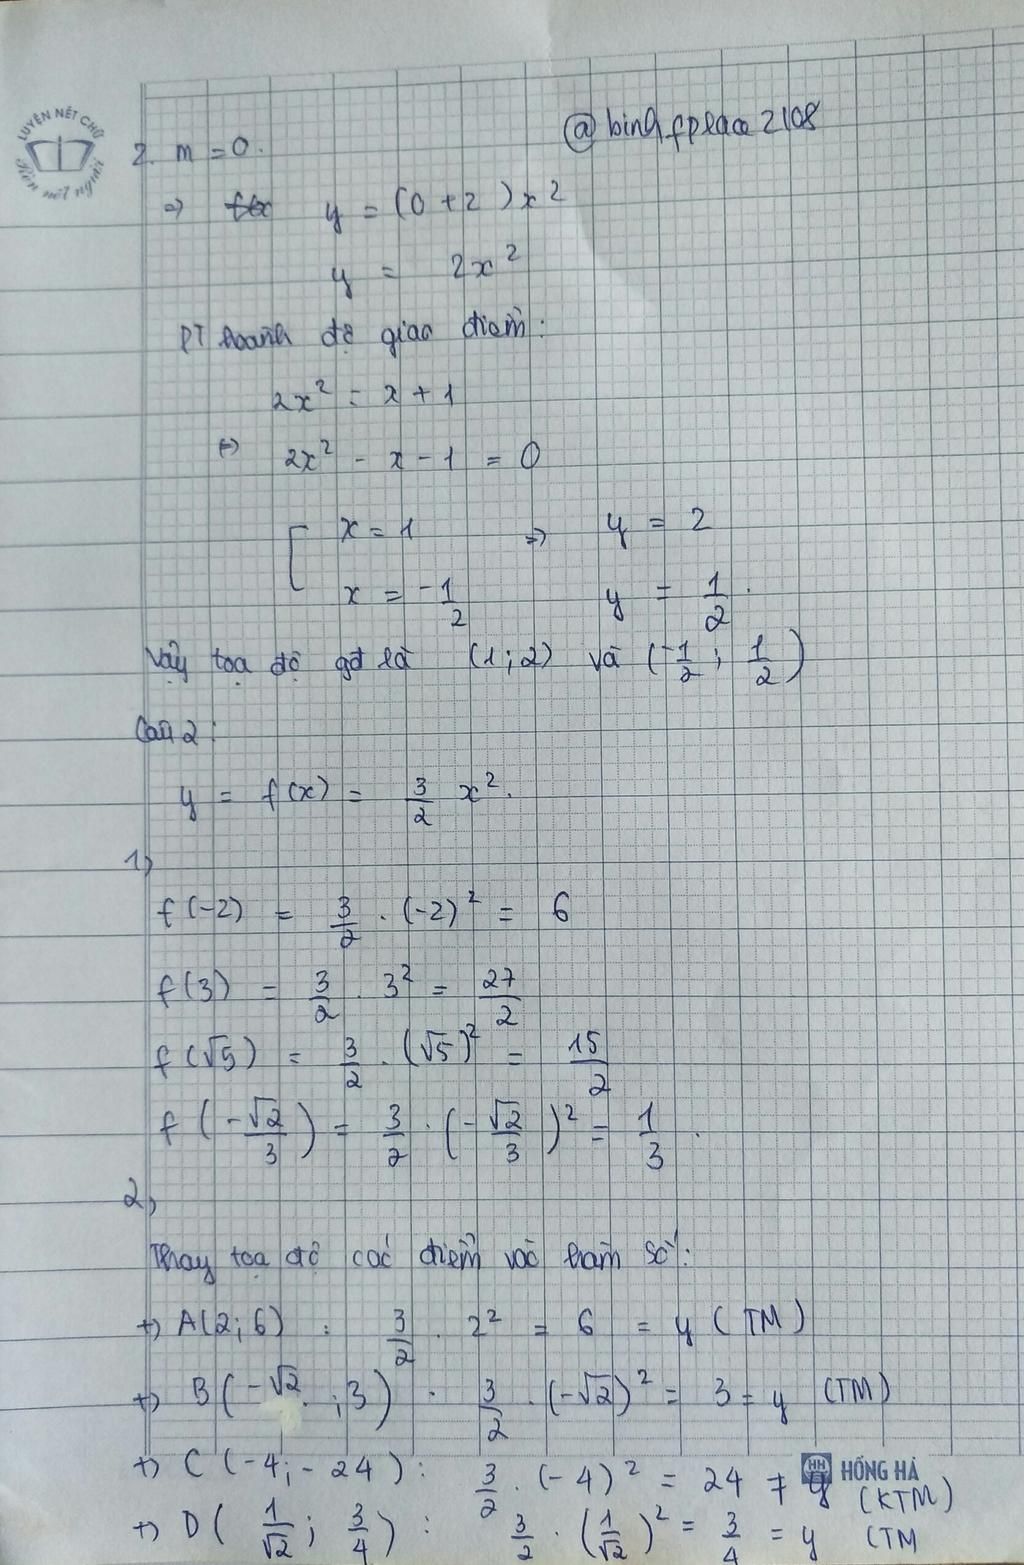 LUYỆN NÉT CHỮ
Rèn nết người
@binhfplaa2108
2. m = 0.
=> y = (0 + 2)x²
y = 2x²
PT hoành độ giao điểm:
2x² = x + 1
<=> 2x² - x - 1 = 0
[ x = 1 => y = 2
x = -1/2 y = 1/2.
Vậy tọa độ gđ là (1;2) và (-1/2; 1/2)
Câu 2:
y = f(x) = 3/2 x².
1)
f(-2) = 3/2 . (-2)² = 6
f(3) = 3/2 . 3² = 27/2
f(√5) = 3/2 . (√5)² = 15/2
f(-√2/3) = 3/2 . (-√2/3)² = 1/3.
2)
Thay tọa độ các điểm vào hàm số:
+) A(2;6) : 3/2 . 2² = 6 = y (TM)
+) B(-√2 ;3) . 3/2 . (-√2)² = 3 = y (TM)
+) C(-4;-24) : 3/2 . (-4)² = 24 ≠ y (KTM)
HH HỒNG HÀ
+) D(1/√2; 3/4) : 3/2 . (1/√2)² = 3/4 = y (TM